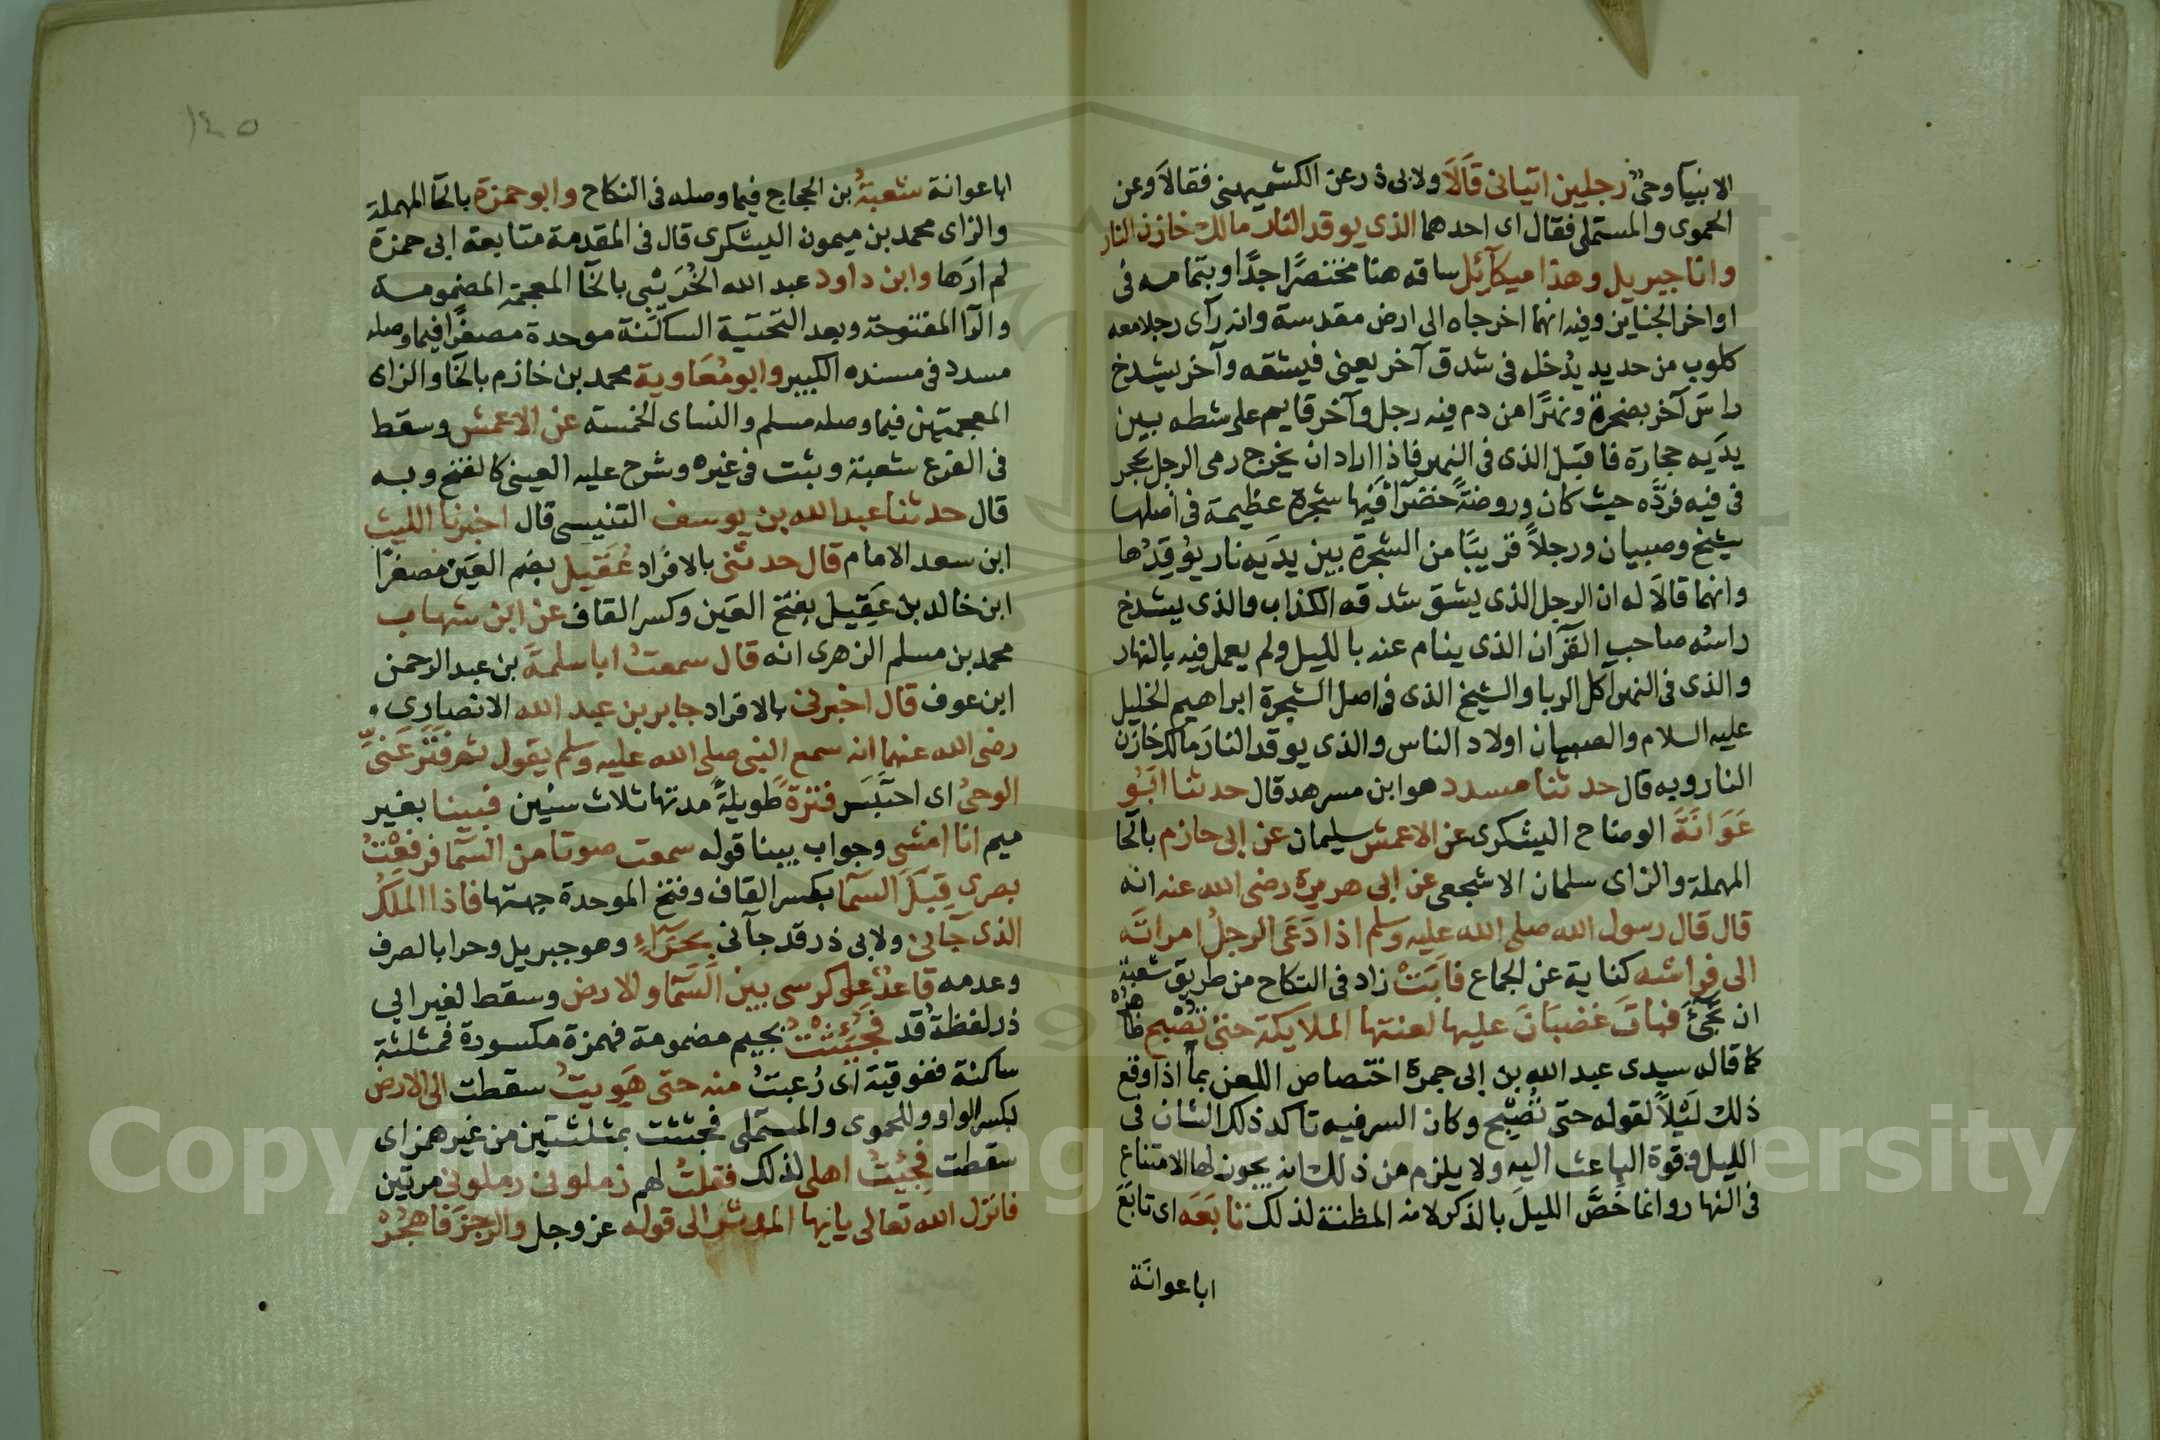 الانبيآ وحي رجلين اتياني قَالَا ولابي ذر عن الكشميهني فقالَا وعن
الحموي والمستملي فقال اي احدهما الذي يوقد النار مالك خازن النار
وانا جبريل وهذا ميكآئل ساقه هنا مختصرًا جدًا وبتمامه في
اواخر الجنايز وفيه انهما اخرجاه الي ارض مقدسة وانه رآى رجلا معه
كلوب من حديد يُدْخله في شدق آخر يعني فيشقه وآخر يشدخ
راسَ آخر بصخرة ونهرًا من دم فيه رجل وآخر قايم على شطه بين
يدَيه حجارة فاقبَل الذي في النهر فاذا اراد ان يخرج رمى الرجل بحجر
في فيه فردَّه حيث كان وروضةً خضرَا فيها شجرة عظيمة في اصلها
شيخ وصبيان ورجلاً قريبًا من الشجرة بين يدَيه نار يوُقِدُها
وانهما قالَا له ان الرجل الذي يشق شدقه الكذاب والذي يشدخ
راسُه صاحب القرآن الذي ينام عنه بالليل ولم يعمل فيه بالنهار
والذي في النهر آكل الربا والشيخ الذي في اصل الشجرة ابراهيم الخليل
عليه السلام والصبيان اولاد الناس والذي يوقد النارَ مالك خازن
النار وبه قال حدثنا مسدد هو ابن مسرهد قال حدثنا ابَوُ
عَوَانَةَ الوضاح اليشكري عن الاعمش سليمان عن ابي حازم بالحآ
المهملة والزاى سلمان الاشجعي عن ابي هريرة رضى الله عنه انه
قال قال رسول الله صلى الله عليه وسلم اذا دَعَى الرجلُ امراتَه
الى فراشه كناية عن الجماع فابَتْ زاد في النكاح من طريق شعبة
ان تَجِئَ فبات غضبَانَ عليها لعنتها الملايكة حتى تُصْبح ظاهره
كما قاله سيدى عبد الله بن ابي جمرة اختصاص اللعن بما اذا وقع
ذلك لَيْلاً لقوله حتى تُصْبح وكان السر فيه تاكد ذلك الشان في
الليل وقوة الباعث اليه ولا يلزم من ذلك انه يجوز لها الامتناع
في النهار وانما خَصَّ الليلَ بالذكر لانه المظنة لذلك تابَعَه اى تابَعَ
ابا عوانة
١٤٥
ابا عوانة شعبةُ بن الحجاج فيما وصله في النكاح وابو حمزة بالحآ المهملة
والزاى محمد بن ميمون اليشكرى قال في المقدمة متابعة ابي حمزة
لم ارَها وابن داود عبد الله الخُرَيْبي بالخآ المعجمة المضمومة
والرآ المفتوحة وبعد التحتية الساكنة موحدة مصغرًا فيما وصله
مسدد في مسنده الكبير وابو مُعَاوية محمد بن خازم بالخا والزاى
المعجمتين فيما وصله مسلم والنساى الخمسة عن الاعمش وسقط
في الفرع شعبة وثبت في غيره وشرح عليه العيني كالفتح وبه
قال حدثنا عبد الله بن يوسف التنيسي قال اخبرنا الليث
ابن سعد الامام قال حدثني بالافراد عُقَيل بضم العَين مصغرًا
ابن خالد بن عَقِيل بفتح العَين وكسر القاف عن ابن شهاب
محمد بن مسلم الزهرى انه قال سمعتُ ابا سلمةَ بن عبد الرحمن
ابن عوف قال اخبرني بالافراد جابر بن عبد الله الانصاري
رضى الله عنهما انه سمع النبي صلى الله عليه وسلم يقول ثم فَتَرَ عَنِّي
الوحيُ اى احتبَس فتْرَةً طويلةً مدتها ثلاث سنين فبينا بغير
ميم انا امشي وجواب بينا قوله سمعت صوتا من السمآ فرفعْتُ
بصري قِبَلَ السمَآ بكسر القاف وفتح الموحدة جهتها فاذا الملَكُ
الذى جآني ولابي ذر قد جآني بحرآءٍ وهو جبريل وحرا بالصرف
وعدمه قاعدٌ على كرسي بين السّمآ والارض وسقط لغير ابي
ذر لفظةُ قد فَجُئِثتُ بجيم مضمومة فهمزة مكسورة فمثلثة
ساكنة ففوقية اى رُعبتُ منه حتى هَويتُ سقطت الى الارض
بكسر الواو وللحموي والمستملي فجثثت بمثلثتين من غير همز اى
سقطت فجئتُ اهلي لذلك فقلتُ لهم زملوني زملوني مرتين
فانزل الله تعالى يايها المدثر الى قوله عز وجل والرجزَ فاهجُرْ
Copyright © King Saud University